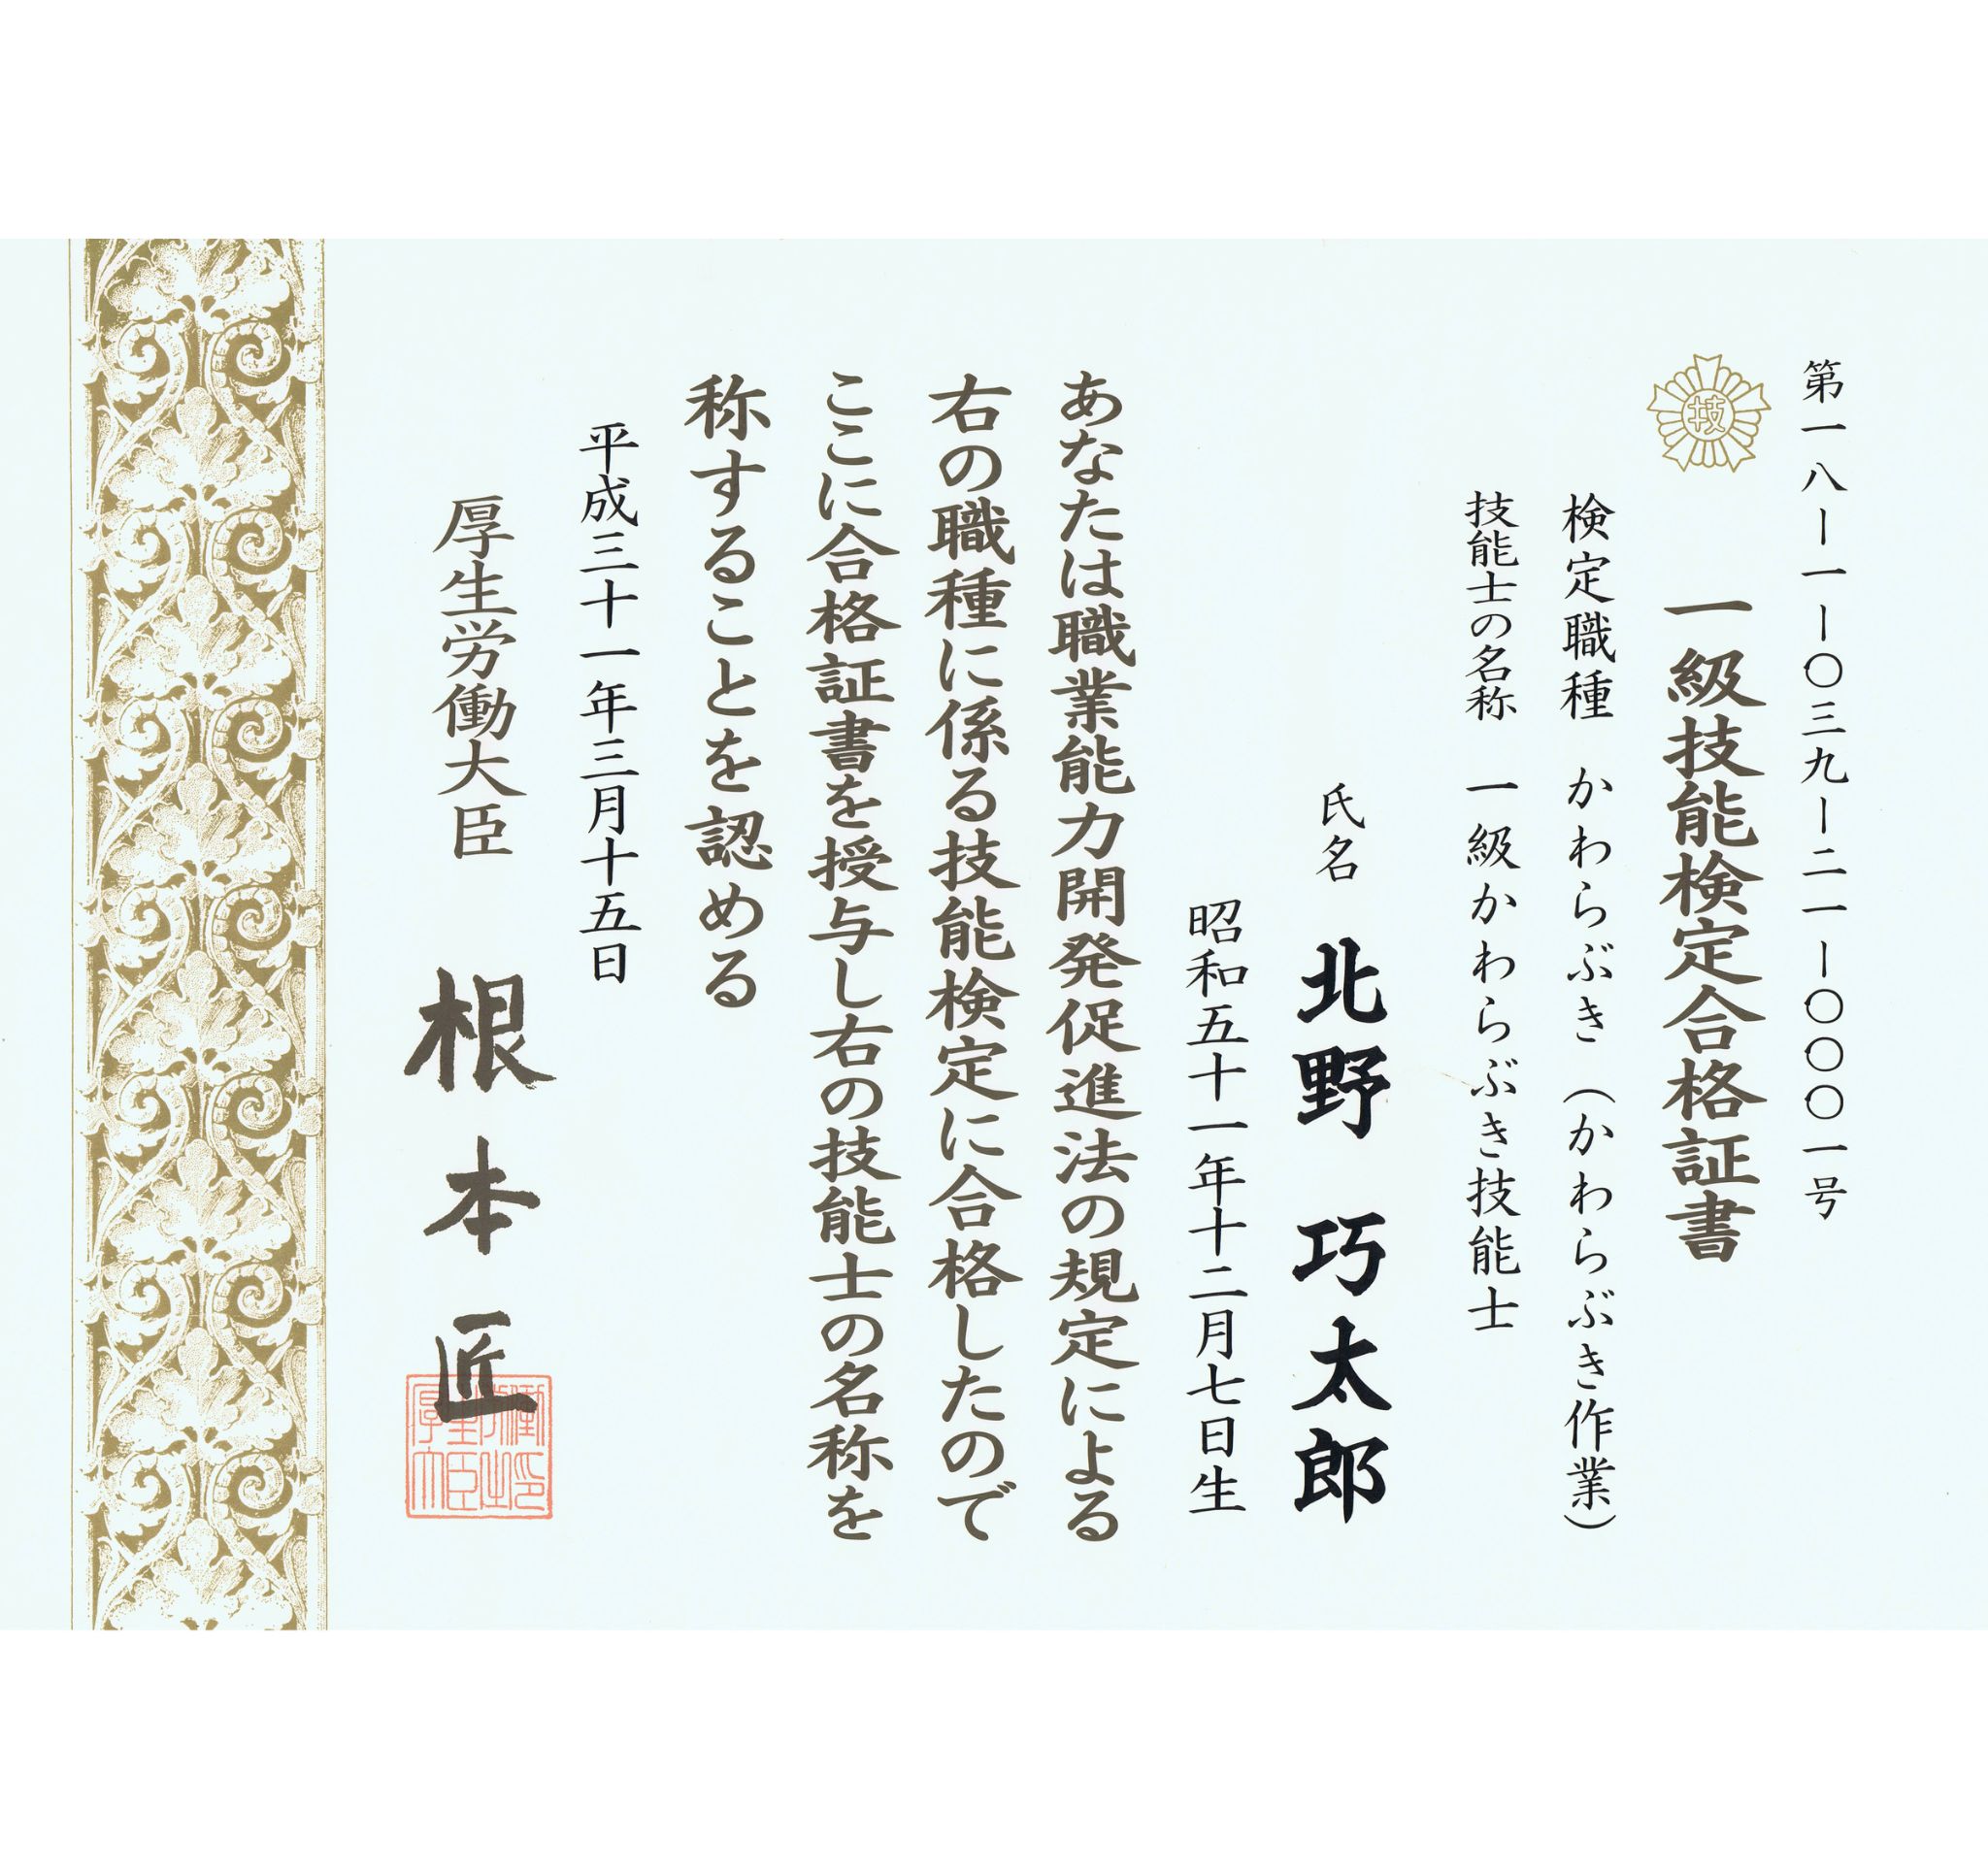 第一八ー一ー〇三九ー二一ー〇〇〇一号
技
一級技能検定合格証書
検定職種 かわらぶき（かわらぶき作業）
技能士の名称 一級かわらぶき技能士
氏名 北野 巧太郎
昭和五十一年十二月七日生
あなたは職業能力開発促進法の規定による
右の職種に係る技能検定に合格したので
ここに合格証書を授与し右の技能士の名称を
称することを認める
平成三十一年三月十五日
厚生労働大臣 根本匠